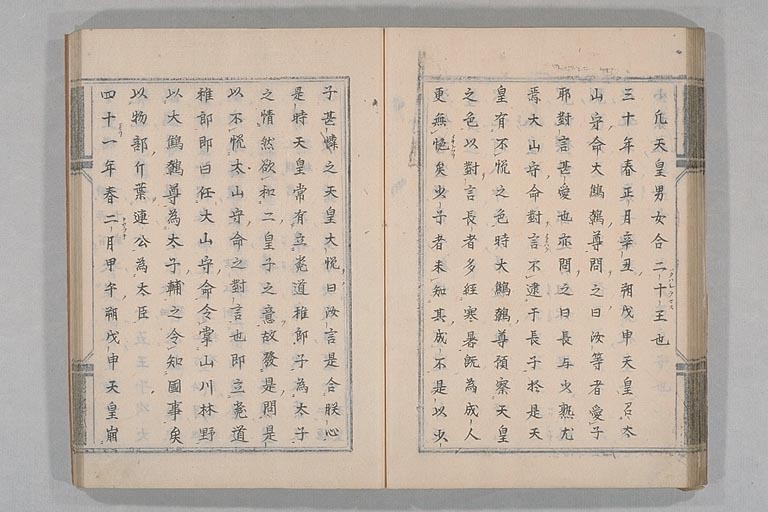 凡天皇男女合二十王也
三十年春正月辛丑朔戊申天皇召太
山守命大鷦鷯尊問之曰汝等者愛子
耶對言甚愛也亦問之曰長与少熟尤
焉大山守命對言不逮于長子於是天
皇有不悦之色時大鷦鷯尊預察天皇
之色以對言長者多経寒暑既為成人
更無悒矣少子者未知其成不是以少
子甚憐之天皇大悦曰汝言是合朕心
是時天皇常有立菟道稚郎子為太子
之情然欲和二皇子之意故發是問是
以不悦太山守命之對言也即立菟道
稚郎即曰任大山守命令掌山川林野
以大鷦鷯尊為太子輔之令知国事矣
以物部介葉連公為大臣
四十一年春二月甲午朔戊申天皇崩